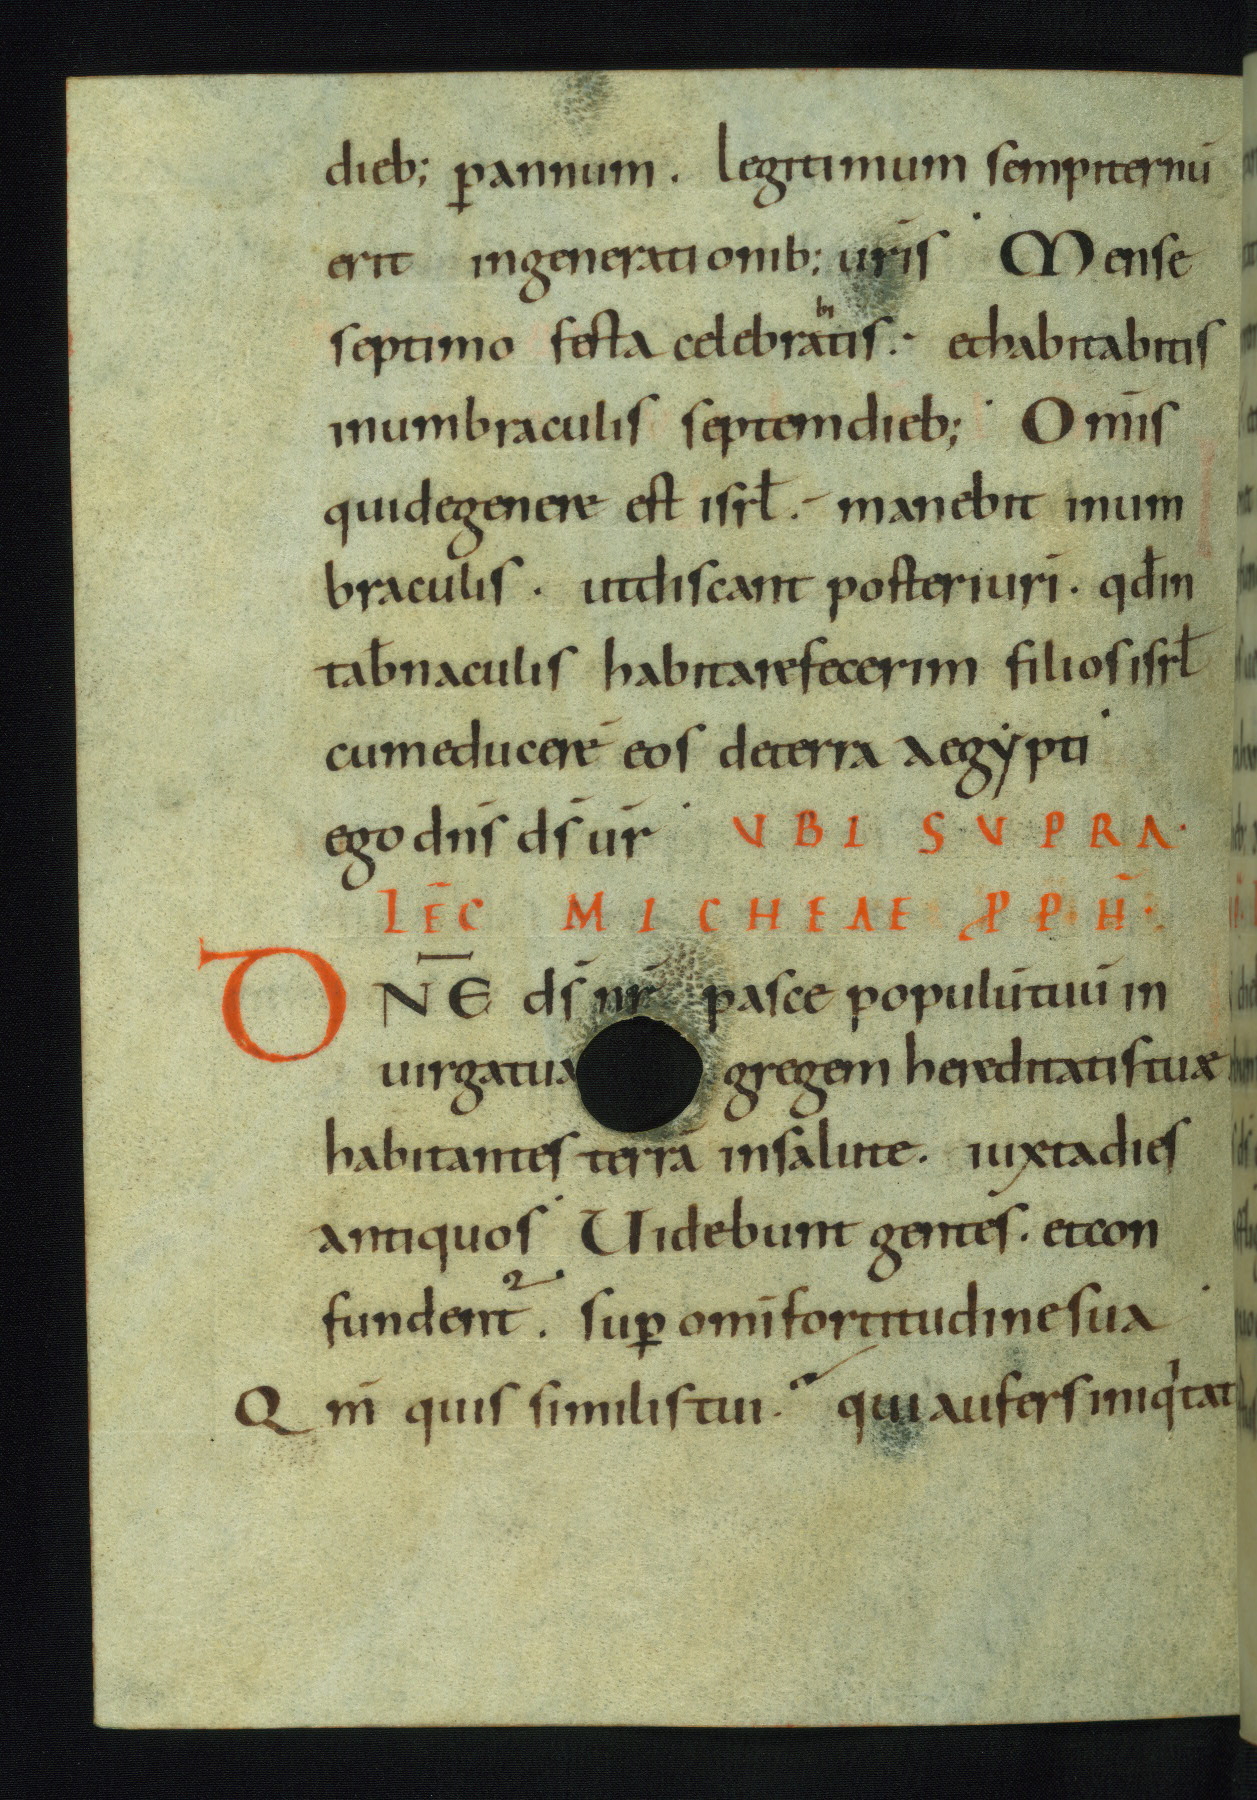 dieb; ꝑannum. Legitimum sempiternū
erit ingenerationib; uris̄ Mense
septimo festa celebrabitis. ethabitabitis
inumbraculis septemdieb; Omīs
quidegenere est isrł. manebit inum
braculis. utdiscant posteriurī. qđin
tab̄naculis habitarefecerim filiosisrł
cumeducerē eos deterra aegẏpti
ego dn̄s ds̄ ur̄ VBI SVPRA.
LEC̄ MICHEAE PPH̄.
DNE̅ ds̄ nr̄ pasce populūtuū in
uirgatua gregem hereditatistuæ
habitantes terrā insalute. iuxtadies
antiquos Uidebunt gentes. etcon
fundent᷑. suꝑ omīfortitudinesua
Qm̄ quis similistui. quiaufersiniqͥtat